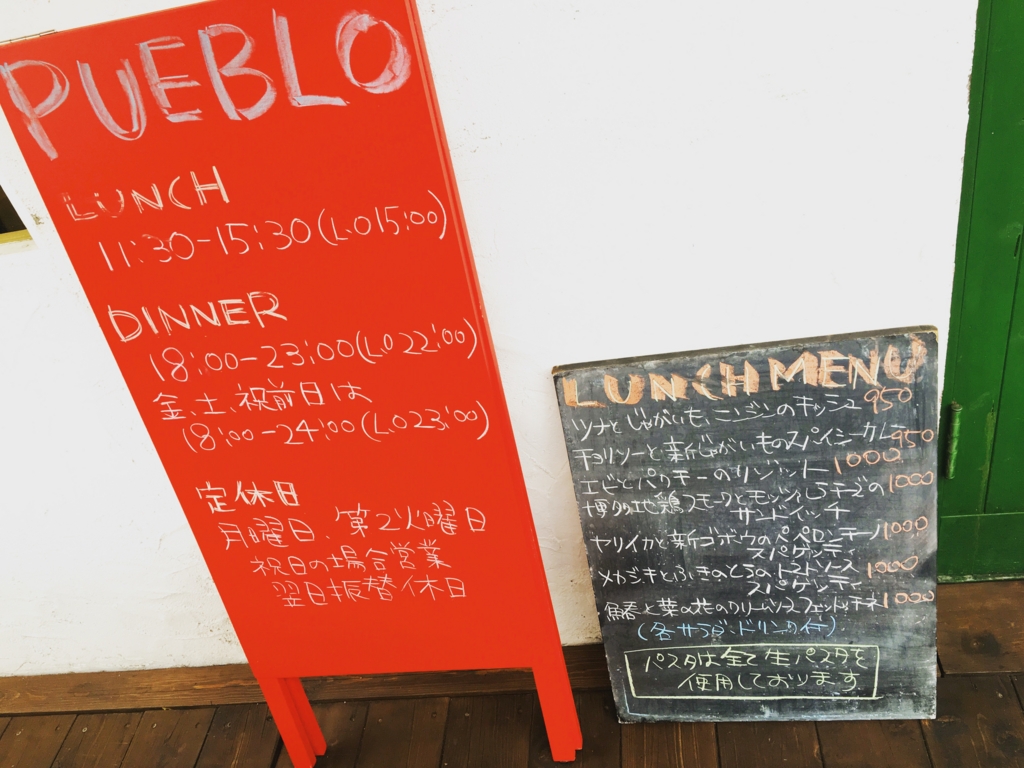 PUEBLO
LUNCH
11:30-15:30(L.O15:00)
DINNER
18:00-23:00(L.O22:00)
金、土、祝前日は
18:00-24:00(L.O23:00)
定休日
月曜日、第2火曜日
祝日の場合営業
翌日振替休日
LUNCH MENU
ツナとじゃがいも、ニンジンのキッシュ 950
チョリソーと新じゃがいものスパイシーカレー 950
エビとパクチーのリゾット 1000
博多地鶏スモークとモッツァレラチーズの 1000
サンドイッチ
ヤリイカと新ゴボウのペペロンチーノ 1000
スパゲッティ
メカジキとふきのとうのトマトソース 1000
スパゲッティ
と菜の花のクリームソースフェットチーネ 1000
(各サラダ・ドリンク付)
パスタは全て生パスタを
使用しております